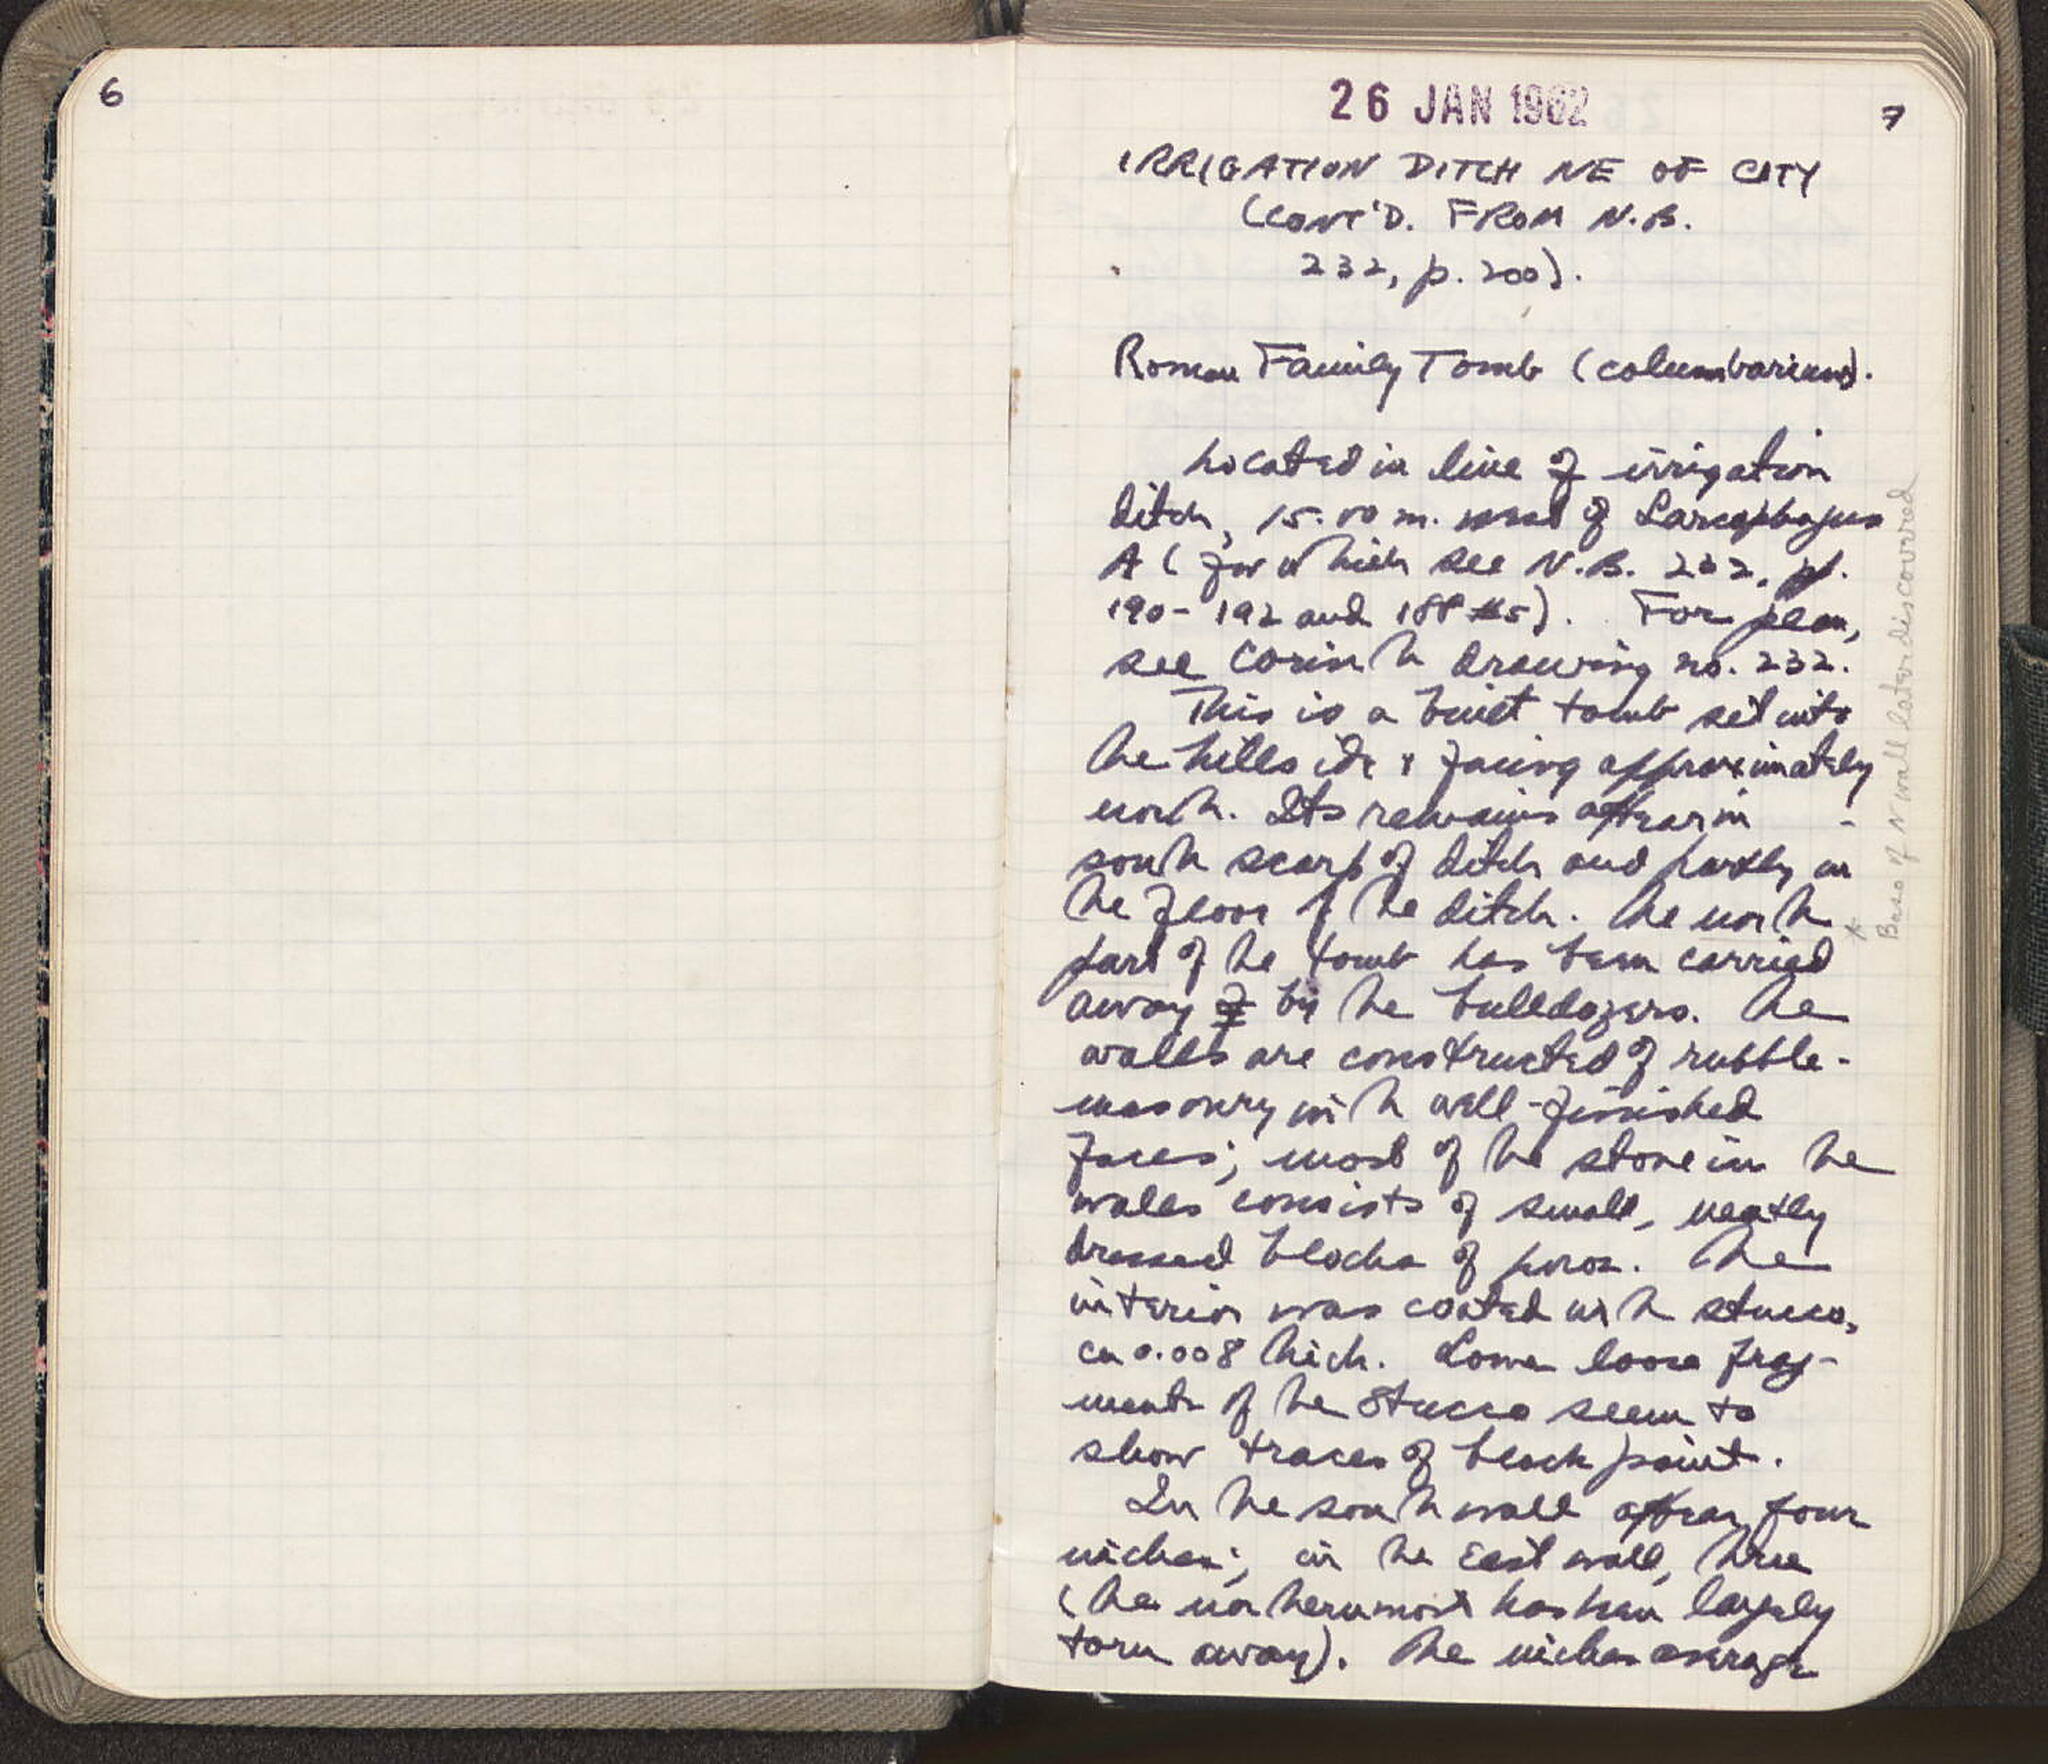 6
26 JAN 1962
7
IRRIGATION DITCH NE OF CITY
(CONT'D. FROM N.B.
232, p. 200).
Roman Family Tomb (columbarium).
Located in line of irrigation
ditch, 15.00 m. of Sarcophagus
A (for which see N.B. 232, pp.
190-192 and 188 ). For plan,
see Corinth drawing no. 232.
This is a built tomb set into
the hillside & facing approximately
north. Its remains appear in
south scarp of ditch and partly in
the floor of the ditch. The north
part of the tomb has been carried
away of by the bulldozers. The
walls are constructed of rubble-
masonry with well-finished
faces; most of the stone in the
walls consists of small, neatly
dressed blocks of poros. The
interior was coated with stucco,
ca 0.008 thick. Some loose frag-
ments of the stucco seem to
show traces of black paint.
In the south wall appear four
niches; in the East wall, three
(the northernmost has been largely
torn away). The niches average
* Base of N wall later discovered